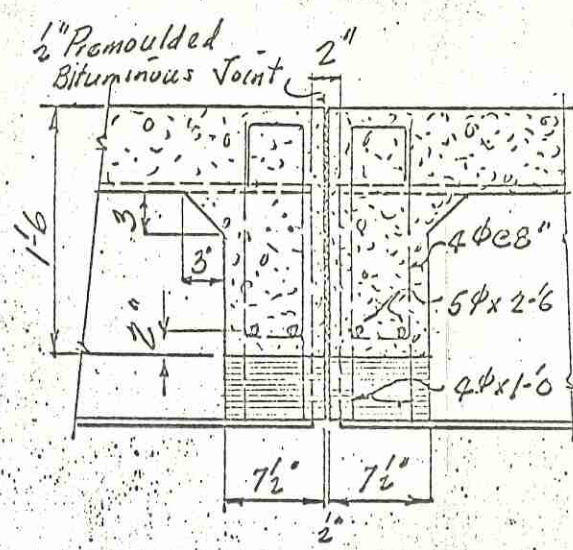 ½" Premoulded
Bituminous Joint
2"
1'-6
3"
3"
2"
4 ϕ @ 8"
5 ϕ x 2'-6
4 ϕ x 1'-0
7½"
7½"
½"